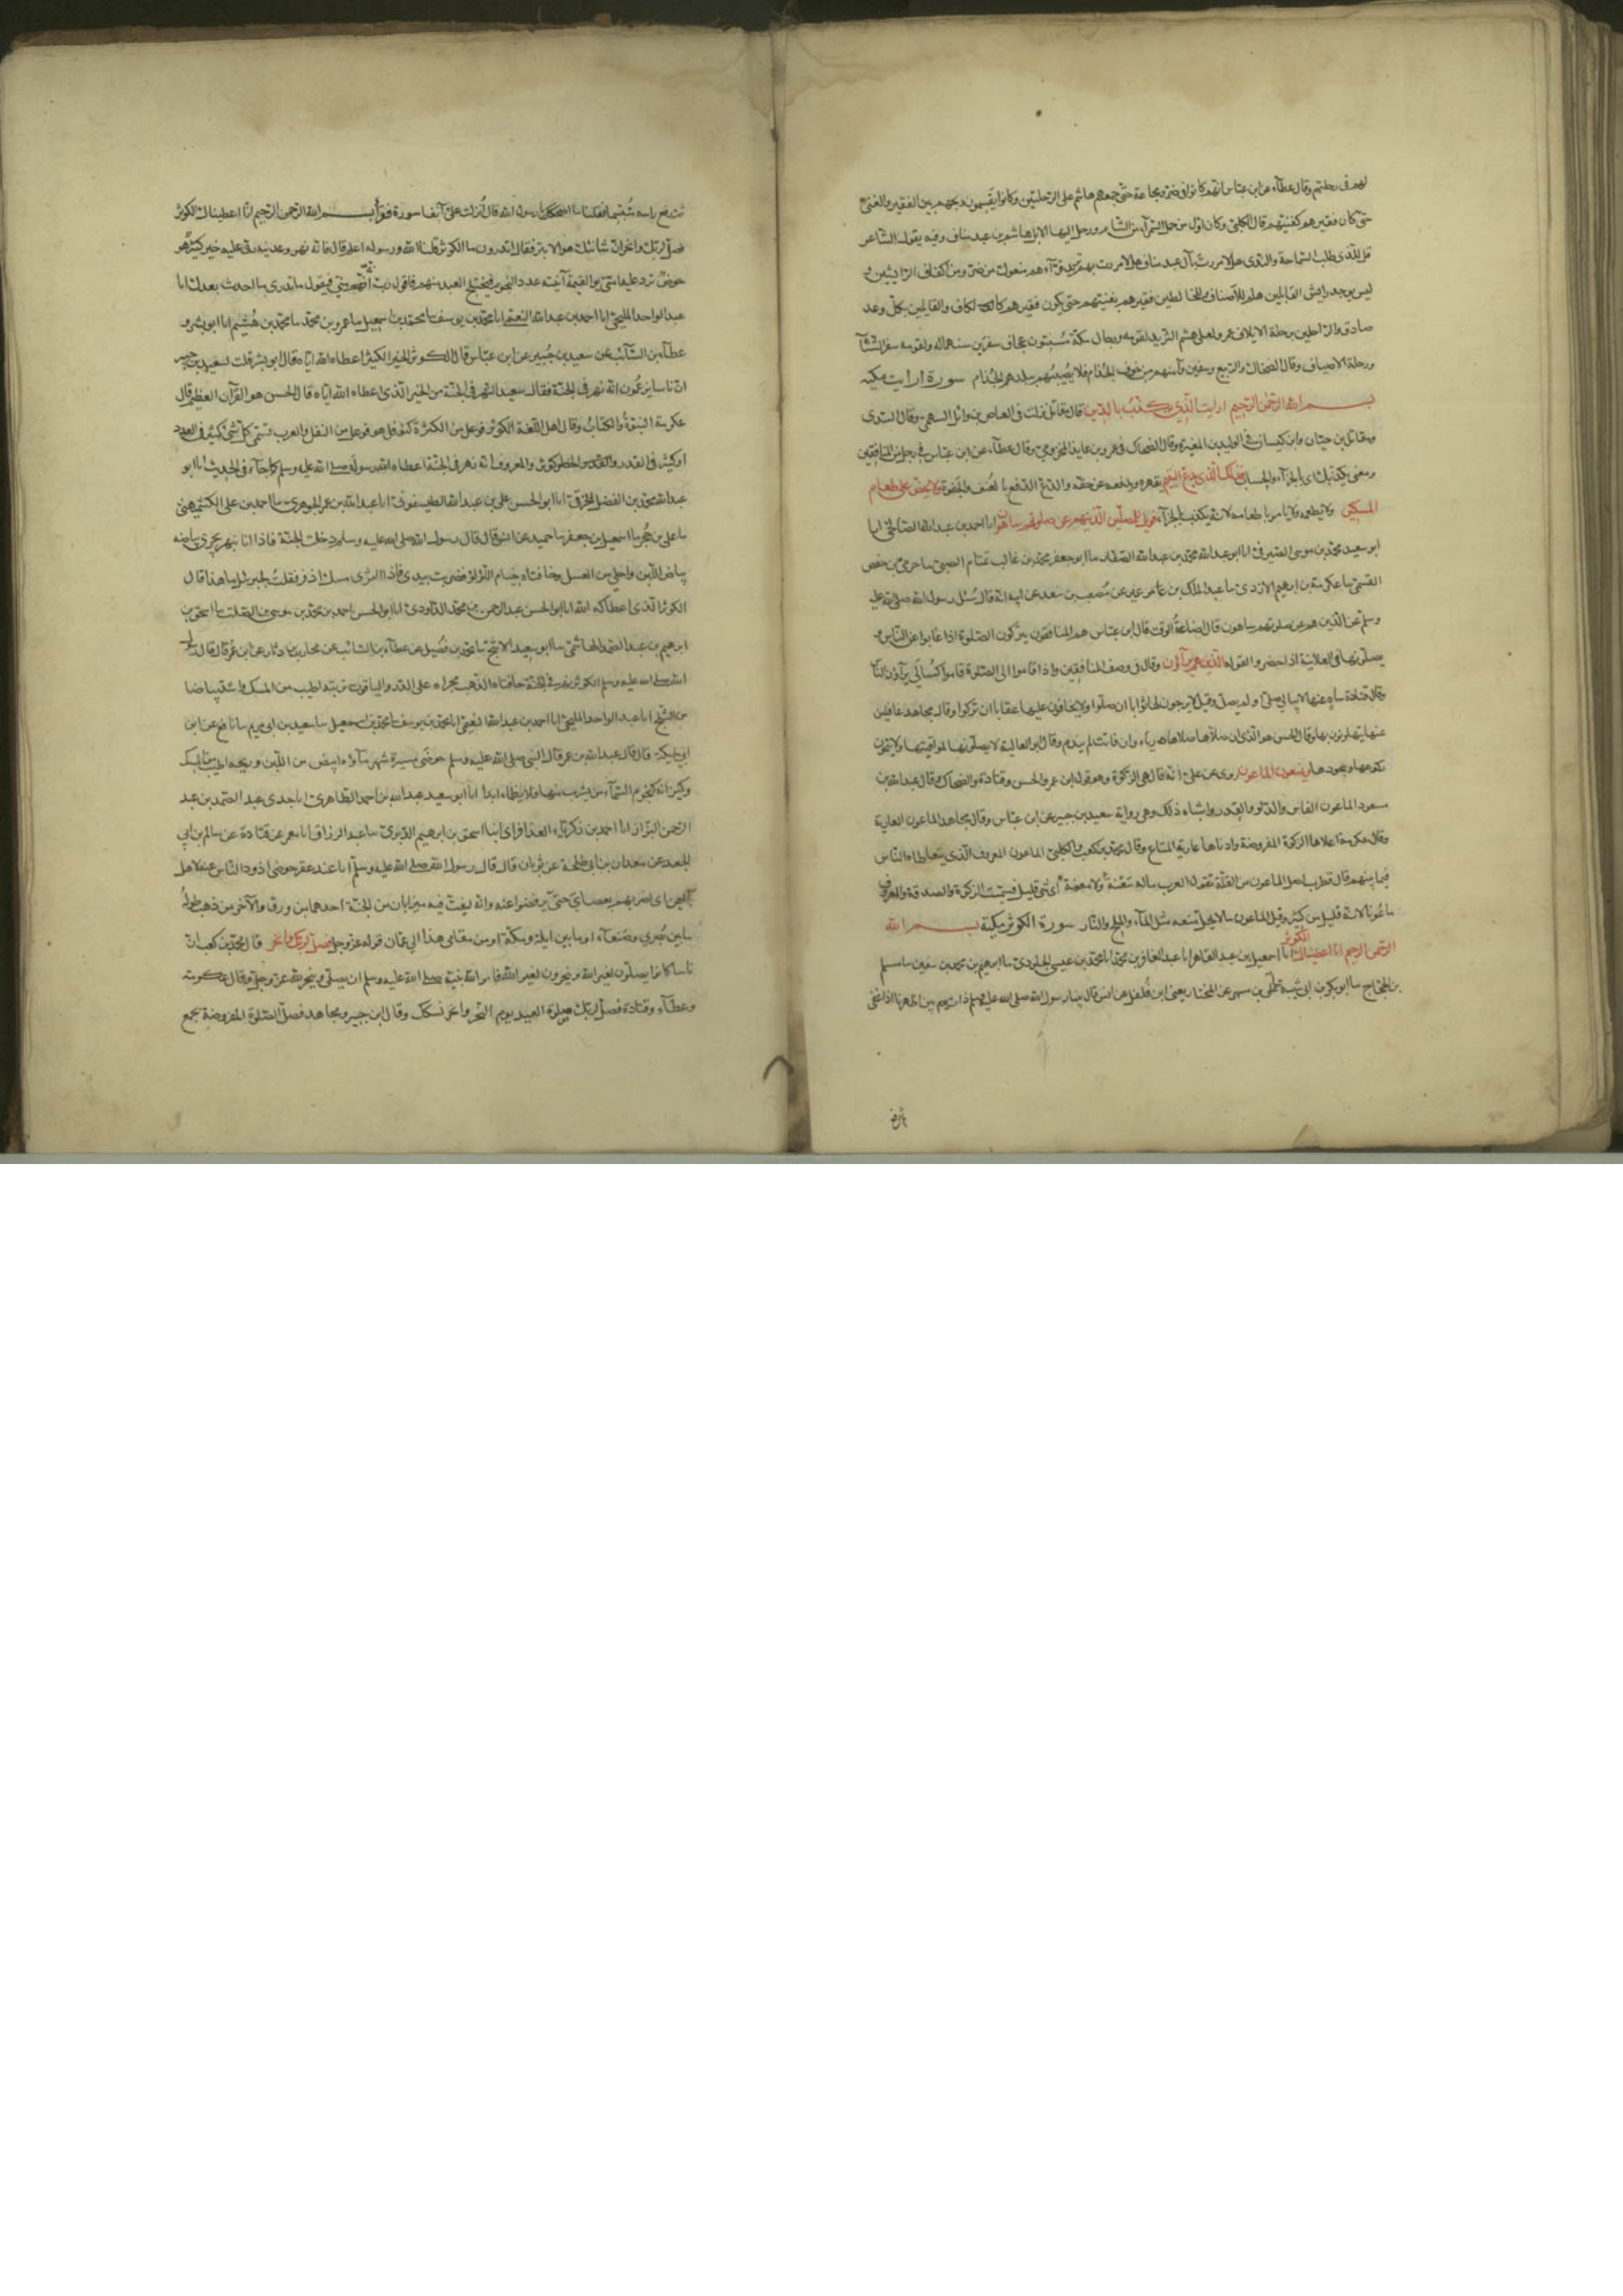 لهم في رحلتهم وقال عطاء عن ابن عباس انهم كانوا في ضر ومجاعة حتى جمعهم هاشم على الرحلتين وكانوا يقسمون ربحهم بين الفقير والغني
حتى كان فقيرهم كغنيهم قال الكلبي وكان اول من حمل السمراء من الشام ورحل اليها الابل هاشم بن عبد مناف وفيه يقول الشاعر
قل للذي طلب السماحة والندى هلا مررت بآل عبد مناف هلا مررت بهم تريد قراهم منعوك من ضر ومن اكفاف الرائشين و
ليس يوجد رايش القايلين هلم للاضياف والخالطين فقيرهم بغنيهم حتى يكون فقيرهم كالكاف والقايلين بكل وعد
صادق والراحلين برحلة الايلاف عمرو العلى هشم الثريد لقومه ورجال مكة مسنتون عجاف سفرين سنهما له ولقومه سفر الشتاء
ورحلة الاصياف وقال الضحاك والربيع وسفين وآمنهم من خوف الجذام فلا يصيبهم ببلدهم الجذام سورة ارايت مكية
بسم الله الرحمن الرحيم ارايت الذي يكذب بالدين قال مقاتل نزلت في العاص بن وائل السهمي وقال السدي
ومقاتل بن حيان وابن كيسان في الوليد بن المغيرة وقال الضحاك في عمرو بن عايذ المخزومي وقال عطاء عن ابن عباس في رجل من المنافقين
ومعنى يكذب بالدين اي بالجزاء والحساب فذلك الذي يدع اليتيم يقهره ويدفعه عن حقه والدع الدفع بالعنف والجفوة ولا يحض على طعام
المسكين ولا يطعمه ولا يامر باطعامه لانه يكذب بالجزاء فويل للمصلين الذين هم عن صلوتهم ساهون انا احمد بن عبد الله الصالحي انا
ابو سعيد محمد بن موسى الصيرفي انا ابو عبد الله محمد بن عبد الله الصفار سا ابو جعفر محمد بن غالب تمتام الضبي سا حرمي بن حفص
القسملي سا عكرمة بن ابرهيم الازدي سا عبد الملك بن عامر عمير عن مصعب بن سعد عن ابيه انه قال سئل رسول الله صلى الله عليه
وسلم عن الذين هم عن صلوتهم ساهون قال اضاعة الوقت قال ابن عباس هم المنافقون يتركون الصلوة اذا غابوا عن الناس و
يصلونها في العلانية اذا حضروا لقوله الذين هم يرآؤن وقال في وصف المنافقين واذا قاموا الى الصلوة قاموا كسالى يرآؤن الناس
وقال قتادة ساه عنها لا يبالي صلى او لم يصل وقيل لا يرجون لها ثوابا ان صلوا ولا يخافون عليها عقابا ان تركوا وقال مجاهد غافلين
عنها يتهاونون بها وقال الحسن هو الذي ان صلاها صلاها رياء وان فاتته لم يندم وقال ابو العالية لا يصلونها لمواقيتها ولا يتمون
ركوعها وسجودها ويمنعون الماعون روي عن علي انه قال هي الزكوة وهو قول ابن عمر والحسن وقتادة والضحاك وقال عبد الله بن
مسعود الماعون الفاس والدلو والقدر واشباه ذلك وهي رواية سعيد بن جبير عن ابن عباس وقال مجاهد الماعون العارية
وقال عكرمة اعلاها الزكوة المفروضة وادناها عارية المتاع وقال محمد بن كعب والكلبي الماعون المعروف الذي يتعاطاه الناس
فيما بينهم قال قطرب اصل الماعون من القلة تقول العرب ماله سعنة ولا معنة اي شئ قليل فسميت الزكوة والصدقة والمعروف
ماعونا لانه قليل من كثير وقيل الماعون ما لا يحل منعه مثل الماء والملح والنار سورة الكوثر مكية بسم الله
الرحمن الرحيم انا اعطيناك الكوثر انا اسمعيل بن عبد القاهر انا عبد الغافر بن محمد انا محمد بن عيسى الجلودي سا ابرهيم بن محمد بن سفين سا مسلم
بن الحجاج سا ابو بكر بن ابي شيبة سا علي بن مسهر عن المختار يعني ابن فلفل عن انس قال بينا رسول الله صلى الله عليه وسلم ذات يوم بين اظهرنا اذ اغفى
ثم رفع
ثم رفع راسه متبسما فقلنا ما اضحكك يا رسول الله قال انزلت علي آنفا سورة فقرأ بسم الله الرحمن الرحيم انا اعطيناك الكوثر
فصل لربك وانحر ان شانئك هو الابتر فقال اتدرون ما الكوثر قلنا الله ورسوله اعلم قال فانه نهر وعدنيه ربي عليه خير كثير هو
حوض ترد عليه امتي يوم القيمة آنيته عدد النجوم فيختلج العبد منهم فاقول رب انه من امتي فيقول ما تدري ما احدث بعدك انا
عبد الواحد المليحي انا احمد بن عبد الله النعيمي انا محمد بن يوسف سا محمد بن اسمعيل سا عمرو بن محمد سا محمد بن هشيم انا ابو بشر و
عطاء بن السائب عن سعيد بن جبير عن ابن عباس قال الكوثر الخير الكثير اعطاه الله اياه قال ابو بشر قلت لسعيد بن جبير
ان ناسا يزعمون انه نهر في الجنة فقال سعيد النهر في الجنة من الخير الذي اعطاه الله اياه قال الحسن هو القرآن العظيم قال
عكرمة النبوة والكتاب وقال اهل اللغة الكوثر فوعل من الكثرة كنوفل هو فوعل من النفل والعرب تسمي كل شئ كثير في العدد
او كثير في القدر والخطر كوثر والمعروف انه نهر في الجنة اعطاه الله رسوله صلى الله عليه وسلم كما جاء في الحديث انا ابو
عبد الله محمد بن الفضل الخرقي انا ابو الحسن علي بن عبد الله الطيسفوني انا عبد الله بن عمر الجوهري سا احمد بن علي الكشميهني
سا علي بن حجر سا اسمعيل بن جعفر سا حميد عن انس قال قال رسول الله صلى الله عليه وسلم دخلت الجنة فاذا انا بنهر يجري بياضه
بياض اللبن واحلى من العسل وحافتاه خيام اللؤلؤ فضربت بيدي فاذا الثرى مسك اذفر فقلت لجبرئيل ما هذا قال
الكوثر الذي اعطاكه الله انا ابو الحسن عبد الرحمن بن محمد الداودي انا ابو الحسن احمد بن محمد بن موسى بن الصلت سا ابو اسحق بن
ابرهيم بن عبد الصمد الهاشمي سا ابو سعيد الاشج سا محمد بن فضيل عن عطاء بن السائب عن محارب بن دثار عن ابن عمر قال قال رسول
الله صلى الله عليه وسلم الكوثر نهر في الجنة حافتاه الذهب مجراه على الدر والياقوت تربته اطيب من المسك واشد بياضا
من الثلج انا عبد الواحد المليحي انا احمد بن عبد الله النعيمي انا محمد بن يوسف سا محمد بن اسمعيل سا سعيد بن ابي مريم سا نافع عن ابن
ابي مليكة قال قال عبد الله بن عمر قال النبي صلى الله عليه وسلم حوضي مسيرة شهر ماؤه ابيض من اللبن وريحه اطيب من المسك
وكيزانه كنجوم السماء من يشرب منها فلا يظماء ابدا انا ابو سعيد عبد الله بن احمد الطاهري انا جدي عبد الصمد بن عبد
الرحمن البزاز انا احمد بن زكرياء العذافري انا اسحق بن ابرهيم الدبري سا عبد الرزاق انا معمر عن قتادة عن سالم بن ابي
الجعد عن معدان بن ابي طلحة عن ثوبان قال قال رسول الله صلى الله عليه وسلم انا عند عقر حوضي اذود الناس عنه لاهل
اليمن اي اضربهم بعصاي حتى يرفضوا عنه وانه ليغت فيه ميزابان من الجنة احدهما من ورق والآخر من ذهب طوله
ما بين بصري وصنعاء او ما بين ايلة ومكة او من مقامي هذا الى عمان قوله عز وجل فصل لربك وانحر قال محمد بن كعب ان
ناسا كانوا يصلون لغير الله وينحرون لغير الله فامر الله نبيه صلى الله عليه وسلم ان يصلي وينحر لله عز وجل وقال عكرمة
وعطاء وقتادة فصل لربك صلوة العيد يوم النحر وانحر نسكك وقال ابن جبير ومجاهد فصل الصلوة المفروضة بجمع